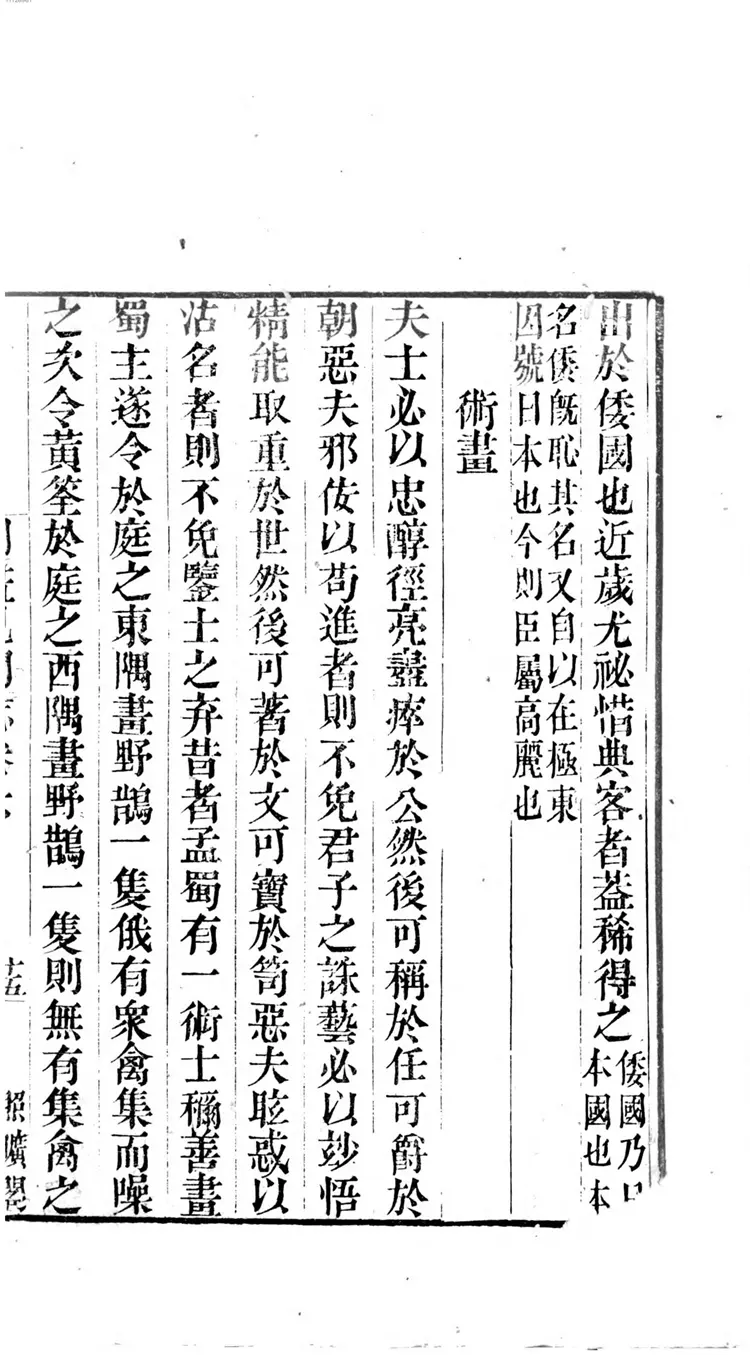 出於倭國也近歲尤祕惜典客者蓋稀得之
倭國乃日
本國也本
名倭旣恥其名又自以在極東
因號日本也今則臣屬高麗也
術畫
夫士必以忠醇徑亮盡瘁於公然後可稱於任可爵於
朝惡夫邪佞以苟進者則不免君子之誅藝必以妙悟
精能取重於世然後可著於文可寶於笥惡夫眩惑以
沽名者則不免鑒士之弃昔者孟蜀有一術士稱善畫
蜀主遂令於庭之東隅畫野鵲一隻俄有衆禽集而噪
之次令黃筌於庭之西隅畫野鵲一隻則無有集禽之
十五
照曠閣